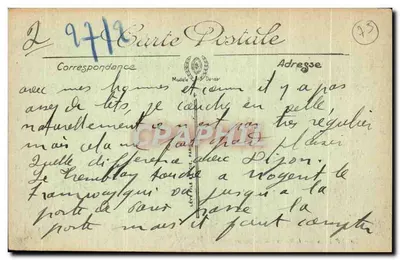 2 27/2 Carte Postale 75
Correspondance Adresse
avec mes hommes et comme il y a pas
assez de lits, je couche en
naturellement c'est pas très régulier
mais cela ne pas plaisir
Quelle différence avec Dijon.
Le Tremblay touche à Nogent le
tramway qui va jusqu'à la
porte de Paris passe la
porte mais il faut compter